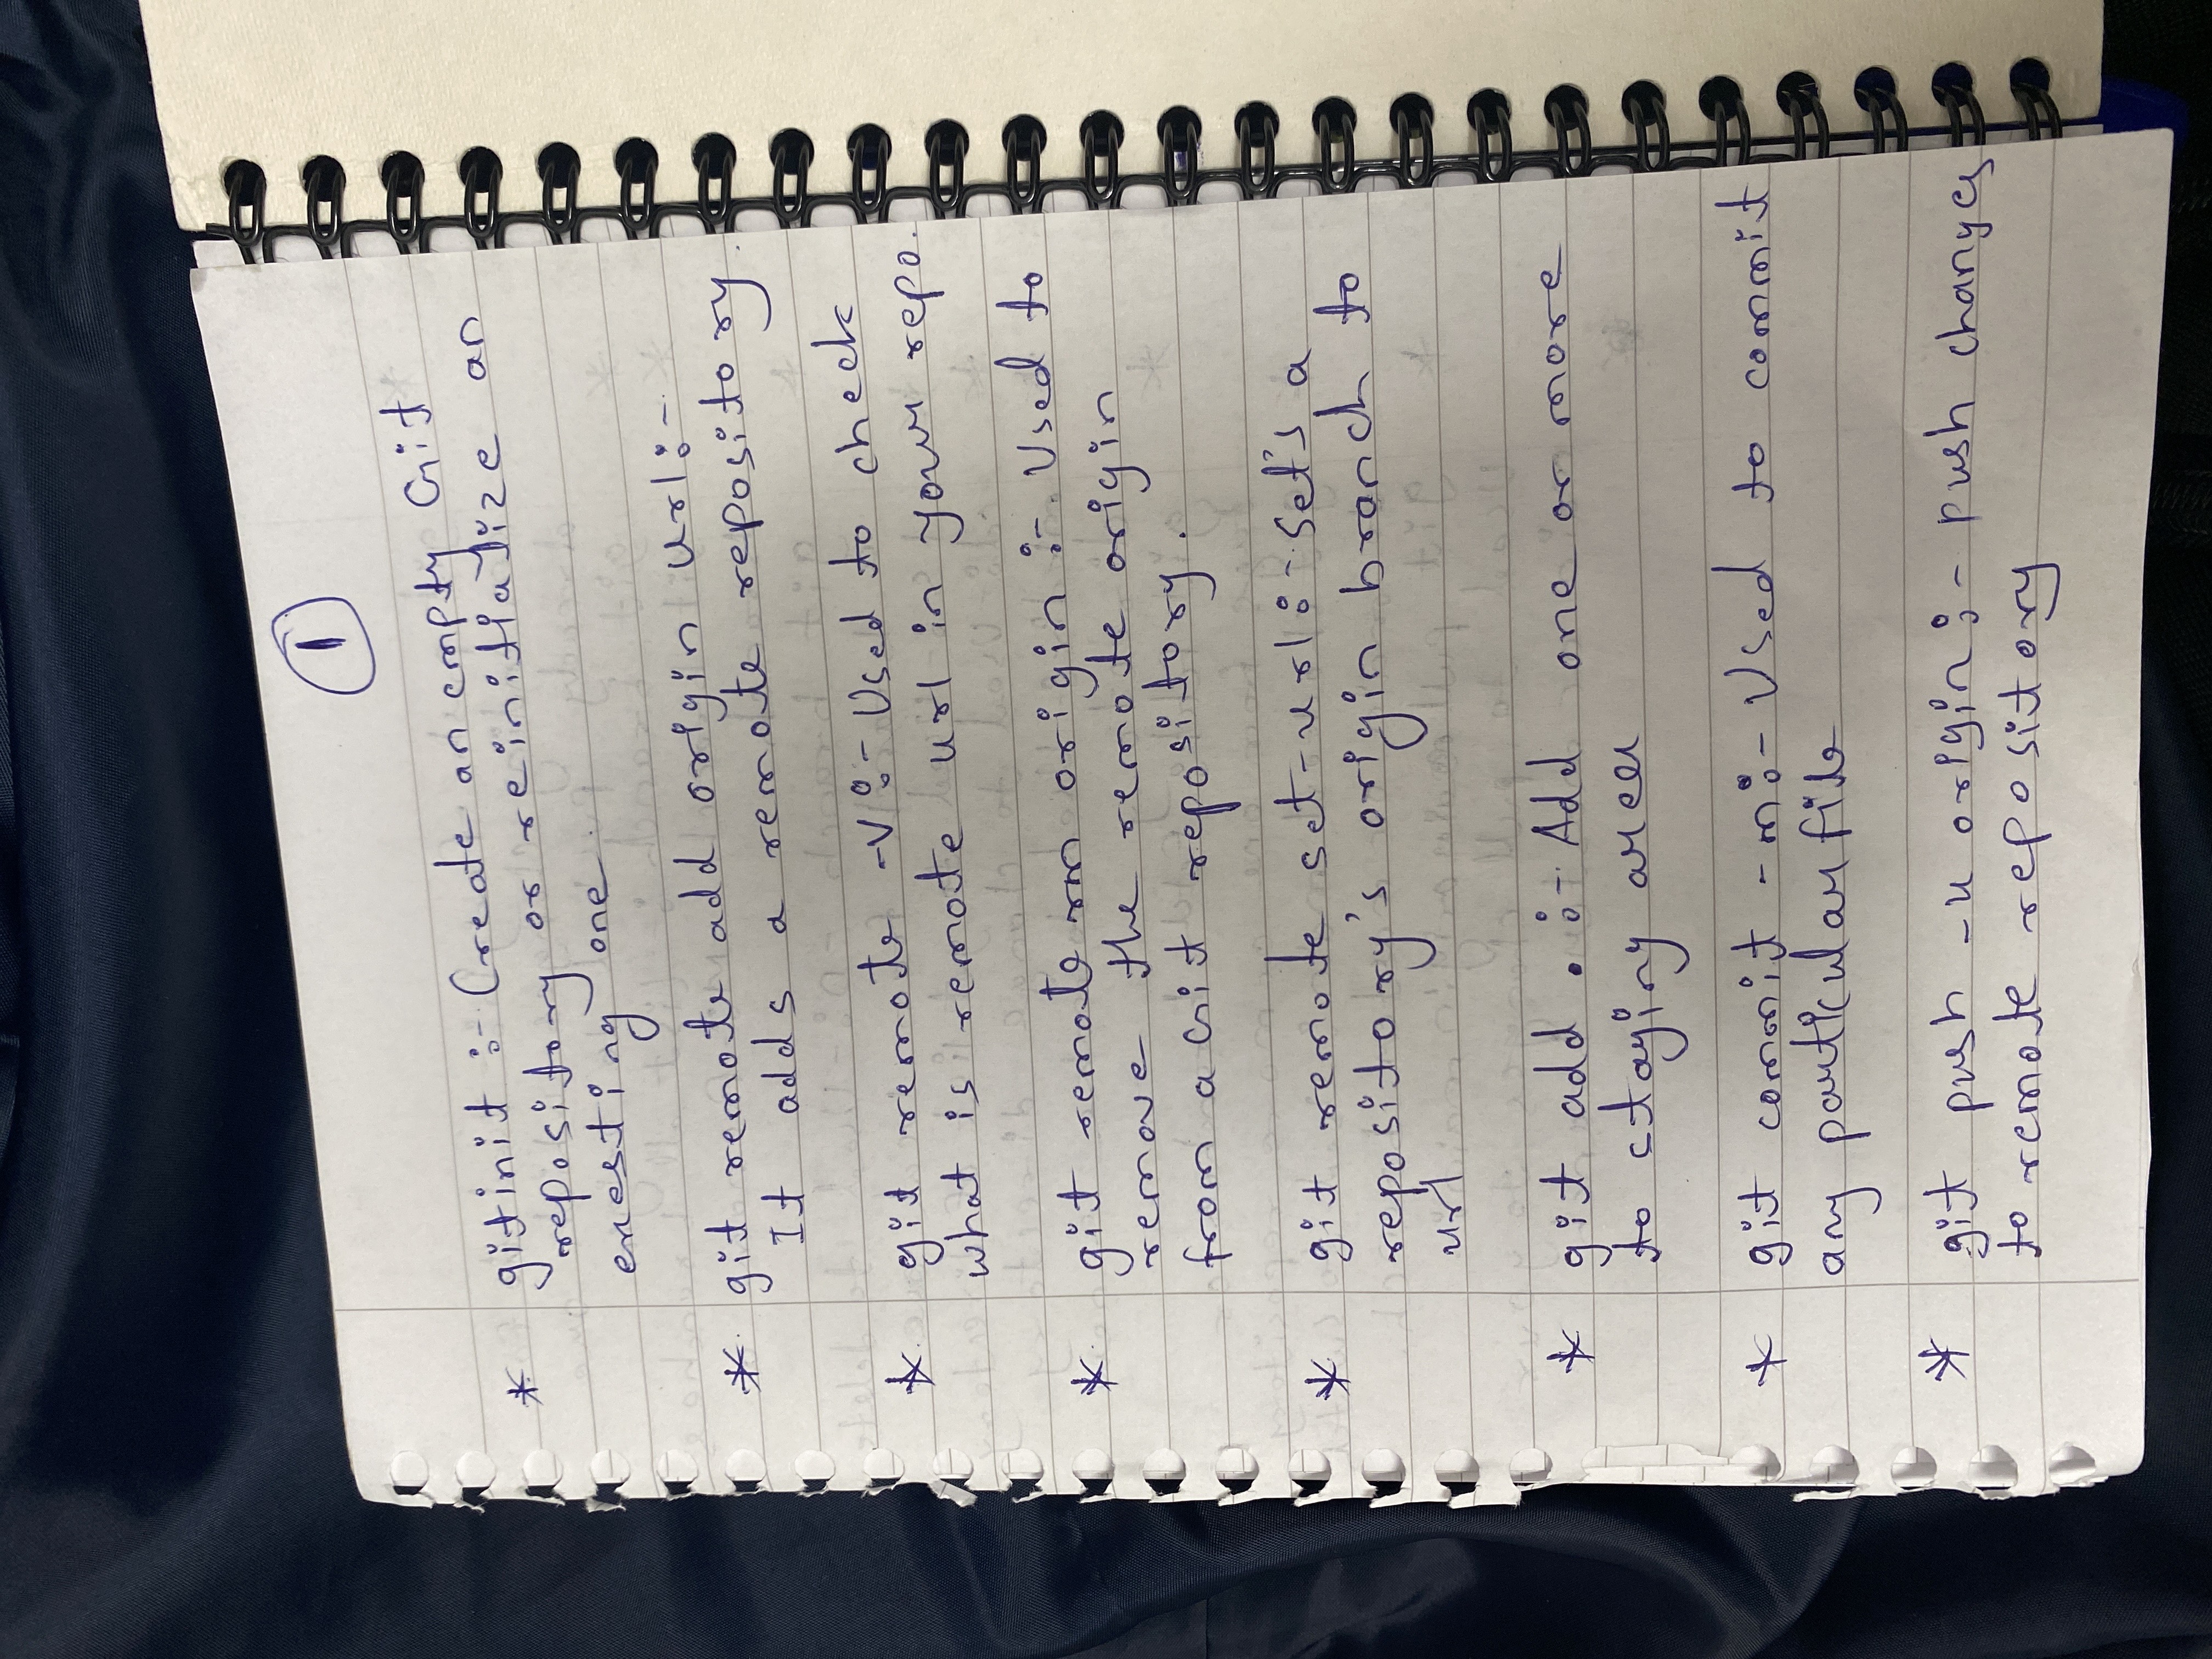 1
* gitinit :- Create an empty Git
repository or reinitialize an
exesting one.
* git remote add origin url:-
It adds a remote repository.
* git remote -v :- Used to check
what is remote url in your repo.
* git remote rm origin :- Used to
remove the remote origin
from a Git repository.
* git remote set-url :- Set's a
repository's origin branch to
url
* git add . :- Add one or more
to staging area
* git commit -m :- Used to commit
any particular file
* git push -u origin ;- push changes
to remote repository